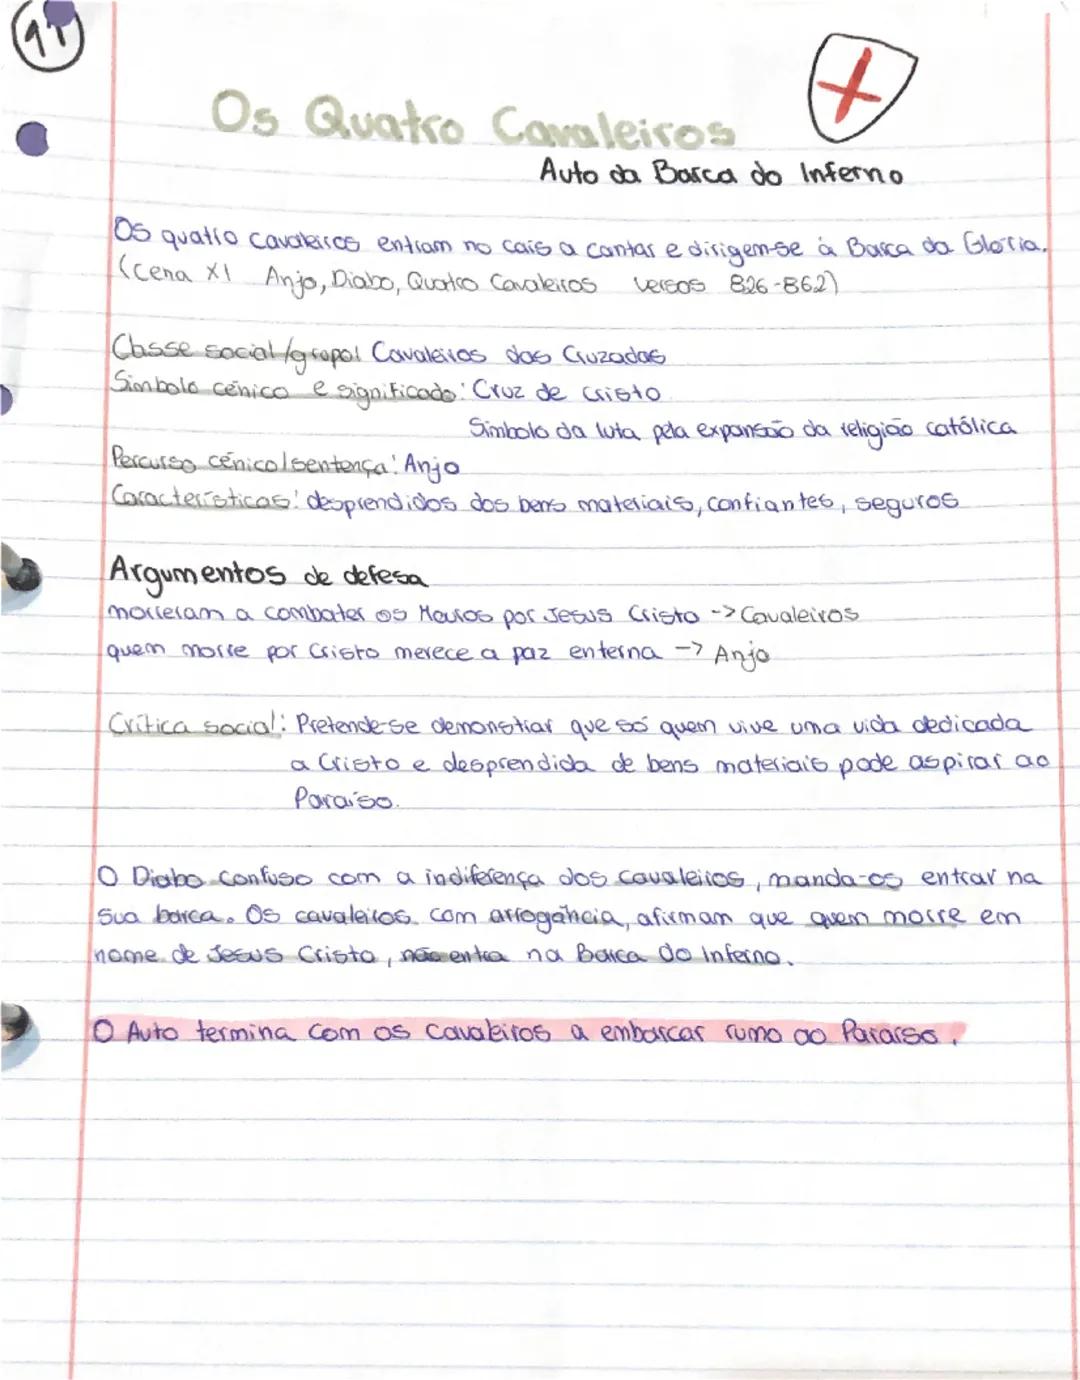 11
Os Quatro Cavaleiros
Auto da Barca do Inferno
Os quatro cavaleiros entram no cais a cantar e dirigem-se à Barca da Glória.
(Cena XI Anjo, Diabo, Quatro Cavaleiros versos 826-862)
Classe social/grupo: Cavaleiros das Cruzadas
Símbolo cénico e significado: Cruz de Cristo
Símbolo da luta pela expansão da religião católica
Percurso cénico/sentença: Anjo
Características: desprendidos dos bens materiais, confiantes, seguros
Argumentos de defesa
morreram a combater os Mouros por Jesus Cristo -> Cavaleiros
quem morre por Cristo merece a paz enterna -> Anjo
Crítica social: Pretende-se demonstrar que só quem vive uma vida dedicada
a Cristo e desprendida de bens materiais pode aspirar ao
Paraíso.
O Diabo confuso com a indiferença dos cavaleiros, manda-os entrar na
sua barca. Os cavaleiros com arrogância, afirmam que quem morre em
nome de Jesus Cristo, não entra na Barca do Inferno.
O Auto termina com os Cavaleiros a embarcar rumo ao Paraíso.